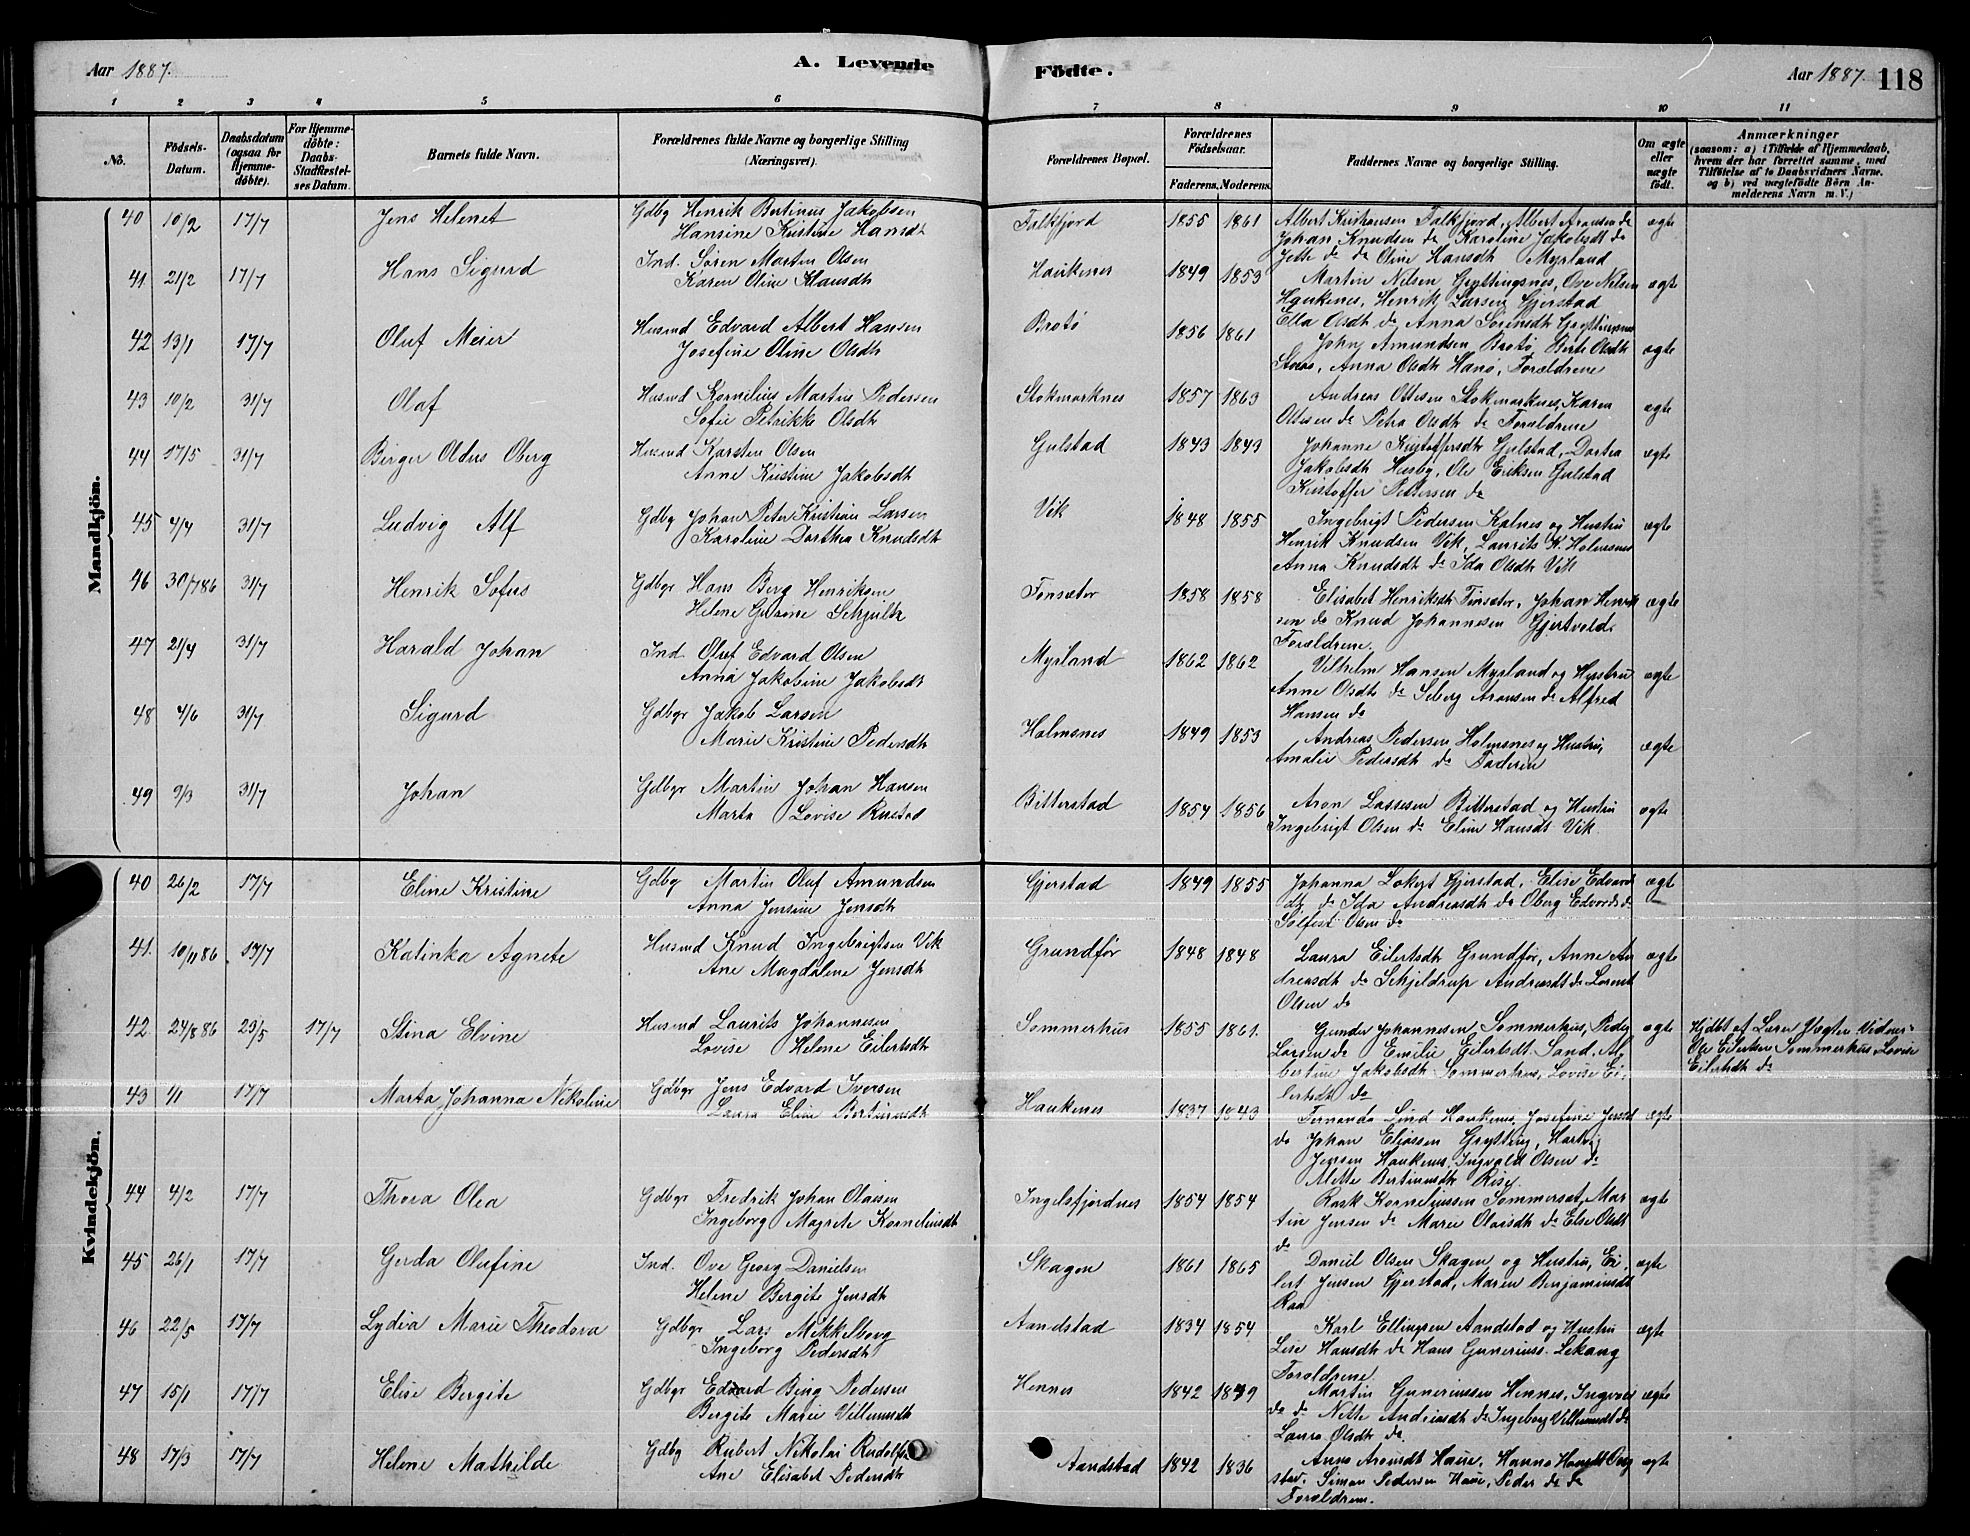 Aar 1887.
A. Levende
Födte.
Aar 1887.
118
1 2 3 4 5 6 7 8 9 10 11
No.
Födsels-Datum.
Daabsdatum (ogsaa for Hjemme-döbte).
For Hjemme-döbte: Daabs-Stadfæstel-ses Datum.
Barnets fulde Navn.
Forældrenes fulde Navne og borgerlige Stilling (Næringsvei).
Forældrenes Bopæl.
Forældrenes Födselsaar.
Faderens. Moderens.
Faddernes Navne og borgerlige Stilling.
Om ægte eller uægte födt.
Anmærkninger
(saasom: a) i Tilfælde af Hjemmedaab, hvem der har forrettet samme, med Tilföielse af to Daabsvidners Navne. og b) ved uægtefödte Börn An-melderens Navn m. V.)
Mandkjön.
40 10/2 17/7 Jens Helenet Gdbg Henrik Bertinus Jakobsen
Hansine Kristine Hansdt
Falkfjord 1855 1861 Albert Kristiansen Falkfjord, Albert Aronsen do
Johan Knudsen do Karoline Jakobsdt do
Jette do do Oline Hansdt Myrland
ægte
41 21/2 17/7 Hans Sigurd Ind. Sören Martin Olsen
Karen Oline Klausdt
Haukenes 1849 1853 Martin Nilsen Gryttingsnes, Ove Nilsen
Haukenes, Henrik Larsen Gjerstad
Ella Olsdt do Anna Sörensdt Gryttingsnes
ægte
42 13/1 17/7 Oluf Meier Husmd Edvard Albert Hansen
Josefine Oline Olsdt
Brotö 1856 1861 John Amundsen Brotö, Berte Olsdt
Anna Olsdt Hanö, Forældrene
ægte
43 10/2 31/7 Olaf Husmd Kornelius Martin Pedersen
Sofie Petrikke Olsdt
Stokmarknes 1857 1863 Andreas Ottesen Stokmarknes, Karen
Ottesen do Petra Olsdt do Forældrene
ægte
44 17/5 31/7 Birger Oldus Oberg Husmd Karsten Olsen
Anne Kristine Jakobsdt
Gulstad 1843 1843 Johanne Kristoffersdt Gulstad, Dortea
Jakobsdt Husby, Ole Eriksen Gulstad
Kristoffer Pettersen do
ægte
45 4/4 31/7 Ludvig Alf Gdbg Johan Peter Kristian Larsen
Karoline Dorthea Knudsdt
Vik 1848 1855 Ingebrigt Pedersen Kalnes og Hustru
Henrik Knudsen Vik, Laurits K. Holmsnes
Anna Knudsdt do Ida Olsdt Vik
ægte
46 30/7 86 31/7 Henrik Sofus Gdbgr Hans Berg Henriksen
Helene Schjultz
Tonsæter 1858 1858 Elisabet Henriksdt Tinsæter, Johan Henrik
sen do Knud Johannesen Gjertvold
Forældrene.
ægte
47 21/4 31/7 Harald Johan Ind Oluf Edvard Olsen
Anna Jakobine Jakobsdt
Myrland 1862 1862 Vilhelm Hansen Myrland og Hustru
Anne Olsdt do Seberg Aronsen do Alfred
Hansen do
ægte
48 4/6 31/7 Sigurd Gdbgr Jakob Larsen
Marie Kristine Pedersdt
Holmsnes 1849 1853 Andreas Pedersen Holmsnes og Hustru,
Amalie Pedersdt do Faderen
ægte
49 9/3 31/7 Johan Gdbgr Martin Johan Hansen
Marta Lovise Rustad
Bitterstad 1854 1856 Aron Lassesen Bitterstad og Hustru
Ingebrigt Olsen do Eline Hansdt Vik
ægte
Kvindekjön.
40 26/2 17/7 Eline Kristine Gdbg Martin Oluf Amundsen
Anna Jensine Jensdt
Gjerstad 1849 1855 Johanna Lokert Gjerstad, Elise Edvards
dt do Ida Andreasdt do Oberg Edvards do
Sölfest Olsen do
ægt
41. 10/11 86. 17/7 Katinka Agnete Husmd Knud Ingebrigtsen Vik
Ane Magdalene Jensdt
Grundför 1848 1848 Laura Eilertsdt Grundför, Anne An
dreasdt do Schjeldrup Andreasdt do Lorents
Olsen do
ægte
42 24/8 86 23/5 17/7 Stina Elvine Husmd Laurits Johannesen
Lovise Helene Eilertsdt
Sommerhus 1855 1861. Gunder Johannesen Sommerhus, Peder
Larsen do Emilie Eilertsdt Sand, Al
bertine Jakobsdt Sommerhus, Lovise Ei
lertsdt do
ægte Hjdbt af Lærer Vidner:
Ole Eilertsen Sommerhus, Lovise
Eilertsdt do
43 1/1 17/7 Marta Johanna Nikoline Gdbgr Jens Edvard Iversen
Laura Eline Bertinusdt
Haukenes 1837 1843 Fernanda Lind Haukenes, Josefine Jensdt
do Johan Eliassen Grytting, Hartvig
Jensen Haukenes, Ingvald Olsen do
Mette Bertinusdt
ægte
44 4/2 17/7 Thora Olea Gdbgr Fredrik Johan Olaisen
Ingeborg Magrete Korneliusdt
Ingelsfjordnes 1854 1854 Rask Korneliussen Sommerset, Mar
tin Jensen do Marie Olaisdt do Else Olsdt
do
ægte
45 26/1 17/7 Gerda Olufine Ind. Ove Georg Danielsen
Helene Bergite Jensdt
Skagen 1861 1865 Daniel Olsen Skagen og Hustru, Ei
lert Jensen Gjerstad, Maren Benjaminsdt
Raa
ægte
46 22/5 17/7 Lydia Marie Theodora Gdbgr Lars Mekkelborg
Ingeborg Pedersdt
Aandstad 1834 1854 Karl Ellingsen Aandstad og Hustru
Lise Hansdt do Hans Gunerius. Lekang
Forældrene.
ægte
47 15/1 17/7 Elise Bergite Gdbgr Edvard Bing Pedersen
Bergite Marie Villumsdt
Hennes 1842 1849 Martin Guneriussen Hennes, Ingvard
do do Nette Andreasdt do Ingeborg Villumsdt do
Laura Olsdt do
ægte
48 17/3 17/7 Helene Mathilde Gdbg Rubert Nikolai Rudolfs
Ane Elisabet Pedersdt
Aandstad 1842 1836 Anna Aronsdt Haue, Hanna Hansdt
Simon Pedersen Haue, Peder do do
Forældrene.
ægt